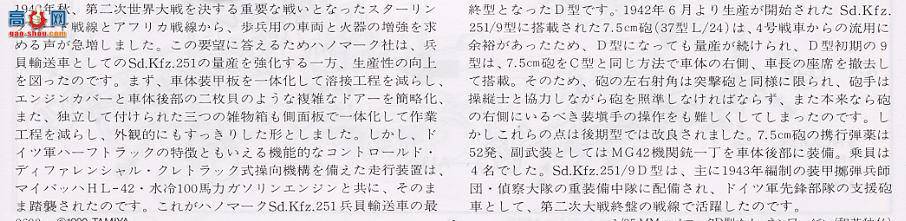 高网
gao-shou.com
1942年秋、第二次世界大戦を決する重要な戦いとなったスターリン
戦線とアフリカ戦線から、歩兵用の車両と火器の増強を求
める声が急増しました。この要望に答えるためハノマーク社は、兵
員輸送車としてのSd.Kfz.251の量産を強化する一方、生産性の向上
を図ったのです。まず、車体装甲板を一体化して溶接工程を減らし、
エンジンカバーと車体後部の二枚貝のような複雑なドアーを簡略化、
また、独立して付けられた三つの雑物箱も側面板で一体化して作業
工程を減らし、外観的にもすっきりした形としました。しかし、ド
イツ軍ハーフトラックの特徴ともいえる機能的なコントロールド・
ディファレンシャル・クレトラック式操向機構を備えた走行装置は、
マイバッハHL-42・水冷100馬力ガソリンエンジンと共に、そのま
ま踏襲されたのです。これがハノマークSd.Kfz.251兵員輸送車の最
©1999 TAMIYA
終型となったD型です。1942年6月より生産が開始されたSd.Kfz.
251/9型に搭載された7.5cm砲(37型L/24)は、4号戦車からの流用に
余裕があったため、D型になっても量産が続けられ、D型初期の9
型は、7.5cm砲をC型と同じ方法で車体の右側、車長の座席を撤去し
て搭載。そのため、砲の左右射角は突撃砲と同様に限られ、砲手は
操縦士と協力しながら砲を照準しなければならず、また本来なら砲
の右側にいるべき装填手の操作をも難しくしてしまったのです。し
かしこれらの点は後期型では改良されました。7.5cm砲の携行弾薬は
52発、副武装としてはMG42機関銃一丁を車体後部に装備。乗員は
4名でした。Sd.Kfz.251/9D型は、主に1943年編制の装甲擲弾兵師
団・偵察大隊の重装備中隊に配備され、ドイツ軍先鋒部隊の支援砲
車として、第二次大戦終盤の戦線で活躍したのです。